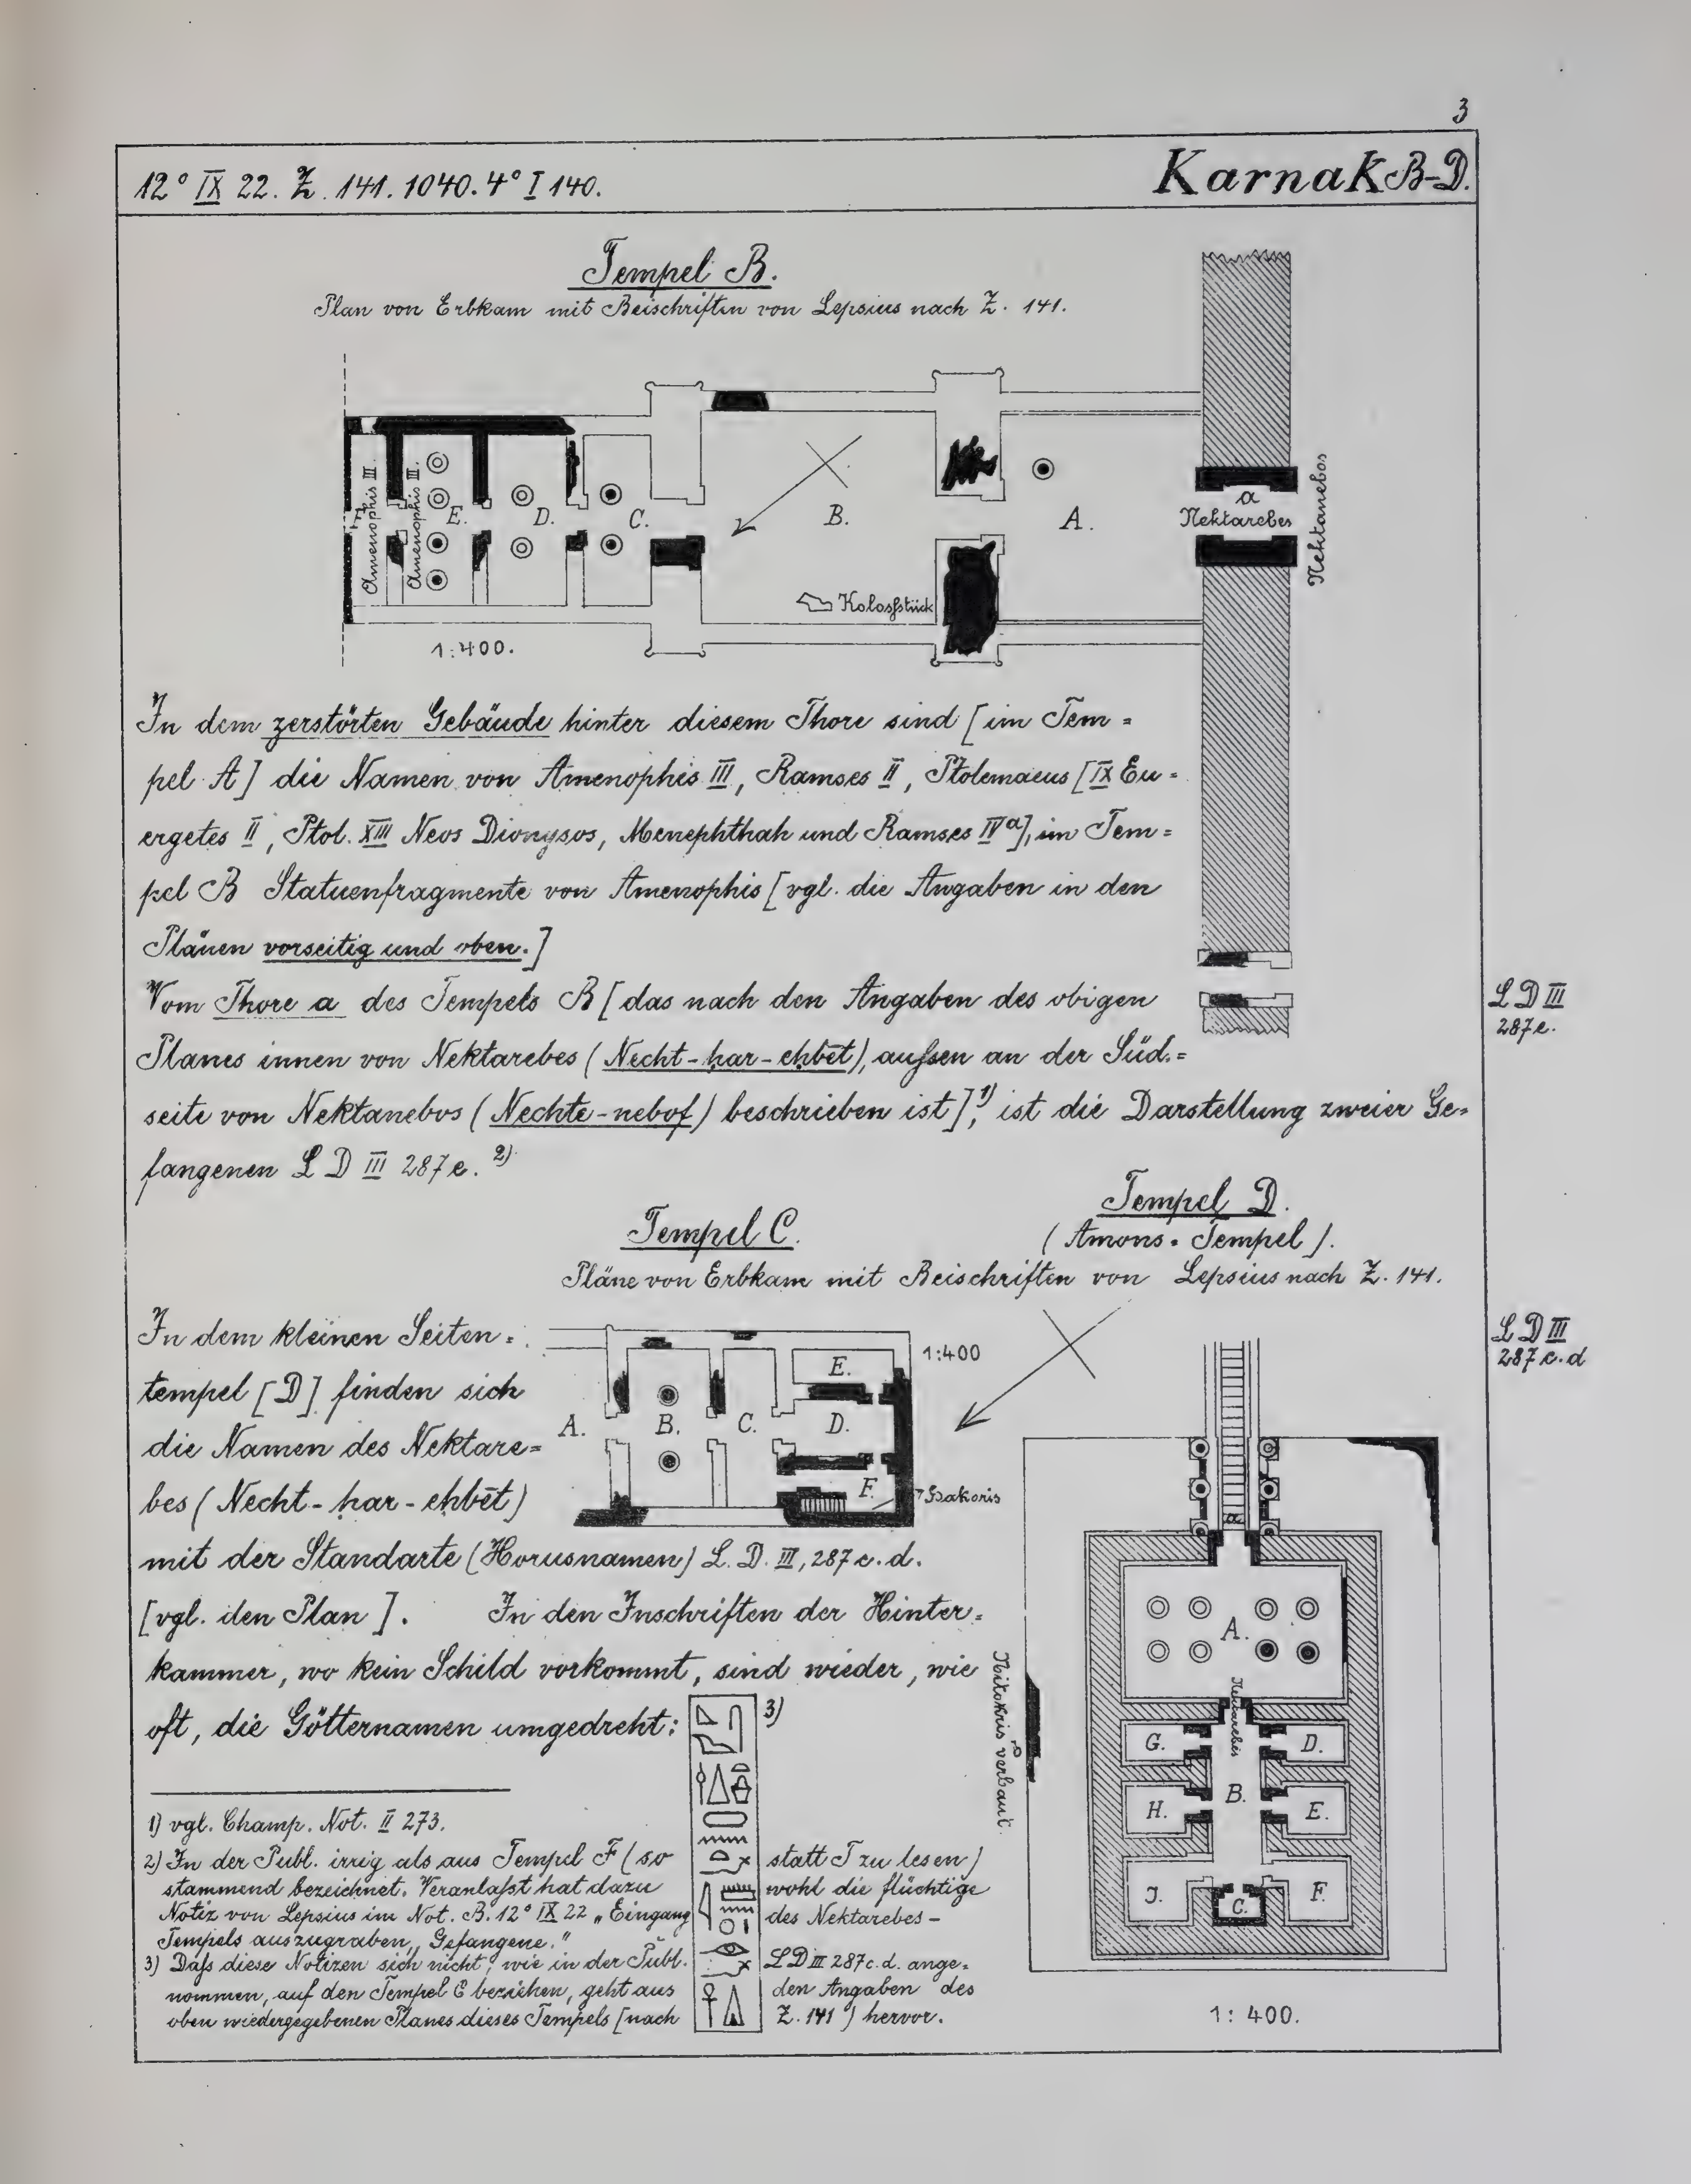 3
12° IX 22. Z. 141. 1040. 4° I 140.
Karnak B-D.
Tempel B.
Plan von Erbkam mit Beischriften von Lepsius nach Z. 141.
Amenophis III.
Amenophis III.
F.
E.
D.
C.
B.
A.
a
Nektarebes
Nektanebos
Kolossstück
1:400.
In dem zerstörten Gebäude hinter diesem Thore sind [im Tem=
pel A] die Namen von Amenophis III, Ramses II, Ptolemaeus [IX Eu=
ergetes II, Ptol. XIII Neos Dionysos, Menephthah und Ramses IVa], im Tem=
pel B Statuenfragmente von Amenophis [vgl. die Angaben in den
Plänen vorseitig und oben.]
Vom Thore a des Tempels B [das nach den Angaben des obigen
Planes innen von Nektarebes (Necht-ḥar-eḥbēt), aufsen an der Süd=
seite von Nektanebos (Nechte-nebof) beschrieben ist],1) ist die Darstellung zweier Ge=
fangenen L D III 287e. 2)
L D III
287e.
Tempel C.
Tempel D.
(Amons-Tempel).
Pläne von Erbkam mit Beischriften von Lepsius nach Z. 141.
L D III
287 c.d
In dem kleinen Seiten=
tempel [D] finden sich
die Namen des Nektare=
bes (Necht-ḥar-eḥbēt)
mit der Standarte (Horusnamen) L. D. III, 287 c. d.
[vgl. den Plan]. In den Inschriften der Hinter=
kammer, wo kein Schild vorkommt, sind wieder, wie
oft, die Götternamen umgedreht: 3)
1:400
A.
B.
C.
D.
E.
F.
Hakoris
a
A.
Nektarebes
G.
D.
B.
H.
E.
J.
C.
F.
Nitokris verbaut.
1:400.
1) vgl. Champ. Not. II 273.
2) In der Publ. irrig als aus Tempel F (so statt T zu lesen)
stammend bezeichnet. Veranlafst hat dazu wohl die flüchtige
Notiz von Lepsius im Not. B. 12° IX 22 „Eingang des Nektarebes-
Tempels auszugraben, Gefangene."
3) Dafs diese Notizen sich nicht, wie in der Publ. LD III 287c.d. ange=
nommen, auf den Tempel C beziehen, geht aus den Angaben des
oben wiedergegebenen Planes dieses Tempels [nach Z. 141] hervor.